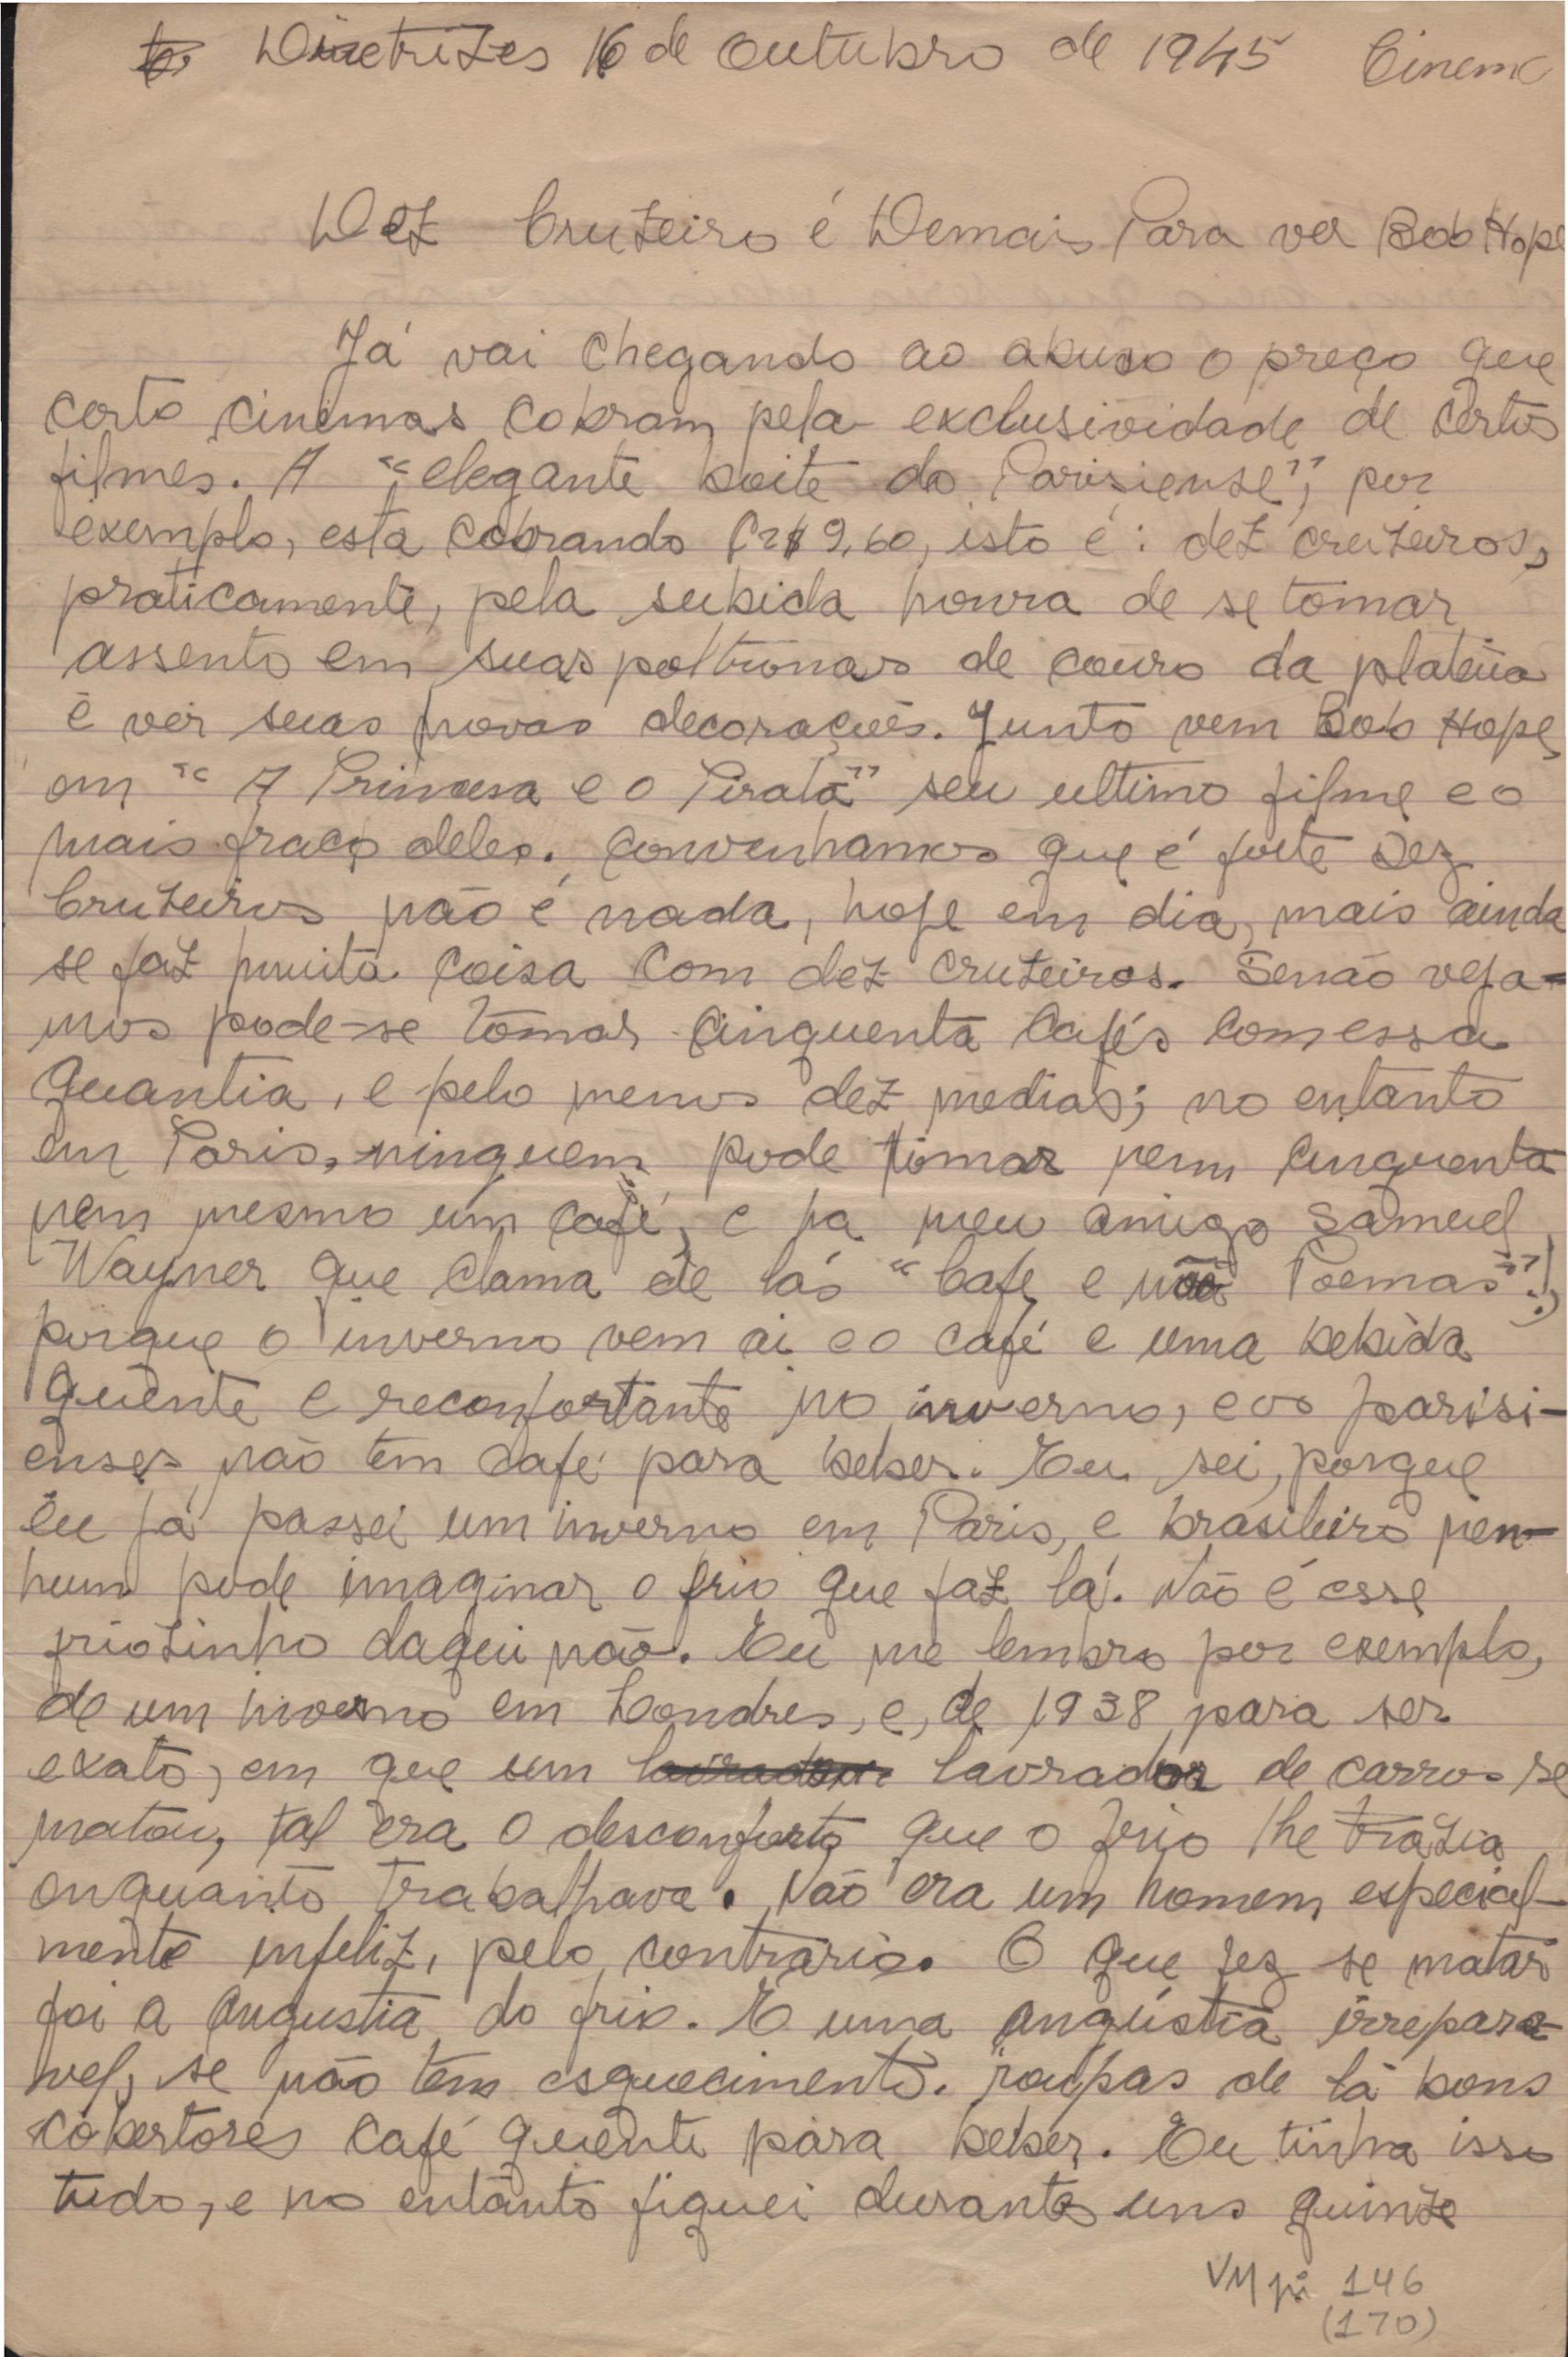 Diretrizes 16 de Outubro de 1945 Cinema
Dez Cruzeiro é Demais Para ver Bob Hope
Já vai chegando ao abuso o preço que
certo cinemas cobram pela exclusividade de certos
filmes. A "elegante boite do Parisiense", por
exemplo, esta cobrando Cr$ 9,60, isto é: dez cruzeiros,
praticamente, pela subida honra de se tomar
assento em suas poltronas de couro da platéia
e ver suas novas decorações. Junto vem Bob Hope,
em "A Princesa e o Pirata" seu ultimo filme e o
mais fraco deles. Convenhamos que é forte Dez
Cruzeiros não é nada, hoje em dia, mais ainda
se faz muita coisa com dez cruzeiros. Senão veja-
mos pode-se tomar cinquenta cafés com essa
quantia, e pelo menos dez medias; no entanto
em Paris, ninguem pode tomar nem cinquenta
nem mesmo um café, e ha meu amigo Samuel
Wayner que clama de lás "Cafe e não Poemas"!,
porque o inverno vem ai e o café e uma bebida
quente e reconfortante no inverno, e os parisi-
enses não tem café para beber. Eu sei, porque
eu já passei um inverno em Paris, e brasileiro nen-
hum pode imaginar o frio que faz lá. Não é esse
friozinho daqui não. Eu me lembro por exemplo,
de um inverno em Londres, e, de 1938 para ser
exato, em que um lavrador de carros se
matou, tal era o desconforto que o frio lhe trazia
enquanto trabalhava. Não era um homem especial-
mente infeliz, pelo contrário. O que fez se matar
foi a angustia do frio. E uma angústia irrepara-
vel, se não tem esquecimento. roupas de lã bons
cobertores café quente para beber. Eu tinha isso
tudo, e no entanto fiquei durante uns quinze
VM pi 146
(170)